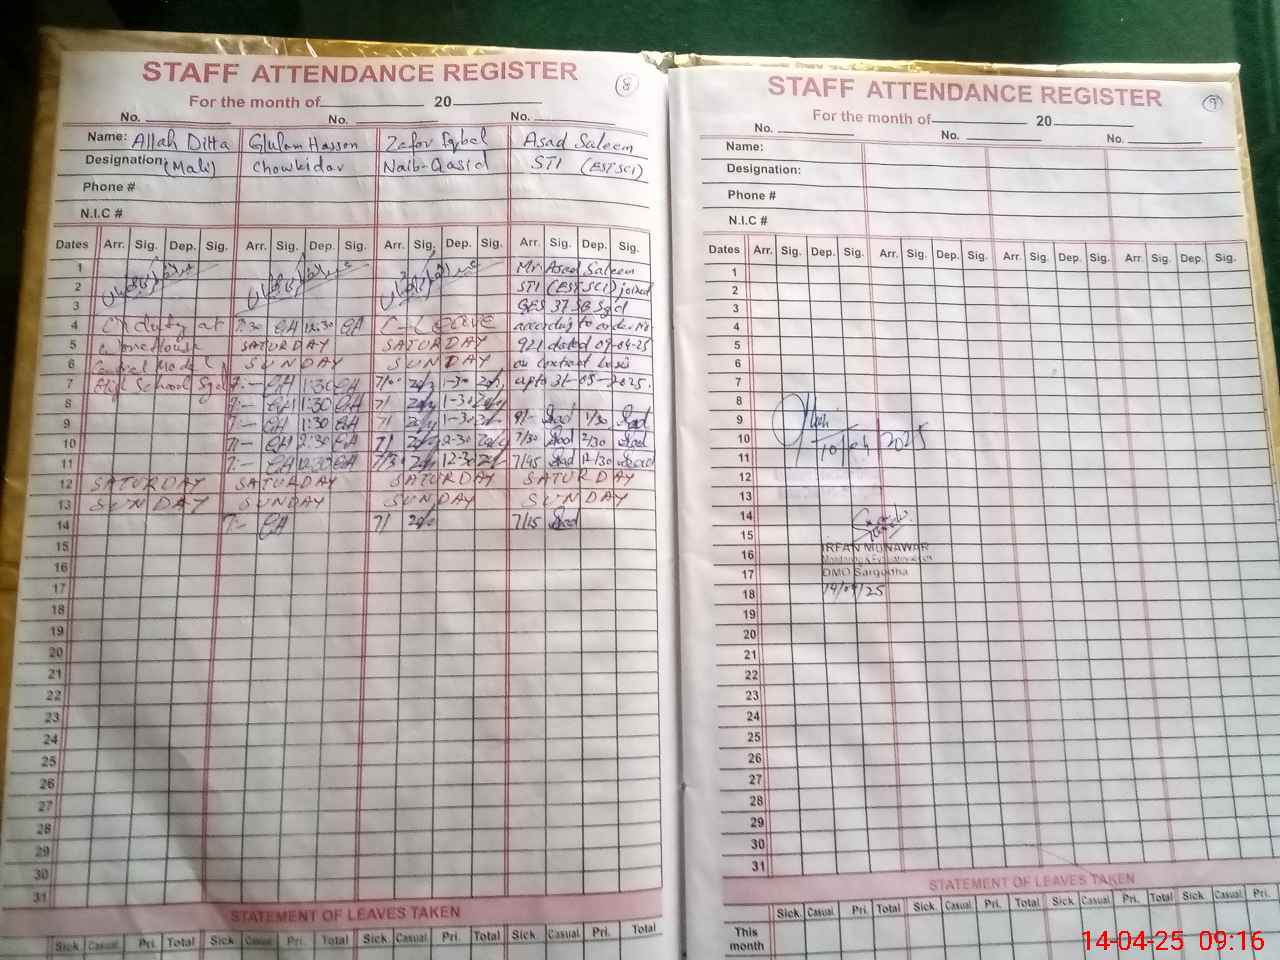 STAFF ATTENDANCE REGISTER
8
For the month of 20
No. No. No.
Name: Allah Ditta Ghulam Hassan Zafar Iqbal Asad Saleem
Designation: (Mali) Chowkidar Naib-Qasid STI (EST SCI)
Phone #
N.I.C #
Dates Arr. Sig. Dep. Sig. Arr. Sig. Dep. Sig. Arr. Sig. Dep. Sig. Arr. Sig. Dep. Sig.
1 Mr Asad Saleem
2 STI (EST SCI) joined
3 GES 37 SB Sgd
4 On duty at 7:30 GH 12:30 GH C-Leave according to order No
5 SATURDAY SATURDAY 921 dated 09-04-25
6 Central Model SUNDAY SUNDAY on contract basis
7 High School Sgd 7:- GH 1:30 GH 7/00 1-30 upto 31-05-2025.
8 7:- GH 1:30 GH 7/ 1-30
9 7:- GH 1:30 GH 7/ 1-30 9/- Asad 1/30 Asad
10 7/- GH 2:30 GH 7/ 2-30 7/30 Asad 2/30 Asad
11 7:- GH 12:30 GH 7/30 12-30 7/45 Asad 12/30 Asad
12 SATURDAY SATURDAY SATURDAY SATURDAY
13 SUNDAY SUNDAY SUNDAY SUNDAY
14 7:- GH 7/ 7/15 Asad
15
16
17
18
19
20
21
22
23
24
25
26
27
28
29
30
31
STATEMENT OF LEAVES TAKEN
Sick. Casual. Pri. Total Sick. Casual Pri. Total Sick. Casual. Pri. Total Sick. Casual. Pri. Total
STAFF ATTENDANCE REGISTER
9
For the month of 20
No. No. No.
Name:
Designation:
Phone #
N.I.C #
Dates Arr. Sig. Dep. Sig. Arr. Sig. Dep. Sig. Arr. Sig. Dep. Sig. Arr. Sig. Dep. Sig.
1
2
3
4
5
6
7
8
9
10 10/04/2025
11
12
13
14
15
16 IRFAN MUNAWAR
17 DMO Sargodha
18 14/04/25
19
20
21
22
23
24
25
26
27
28
29
30
31
STATEMENT OF LEAVES TAKEN
Sick. Casual. Pri. Total Sick. Casual. Pri. Total Sick. Casual. Pri. Total Sick. Casual. Pri.
This month
14-04-25 09:16